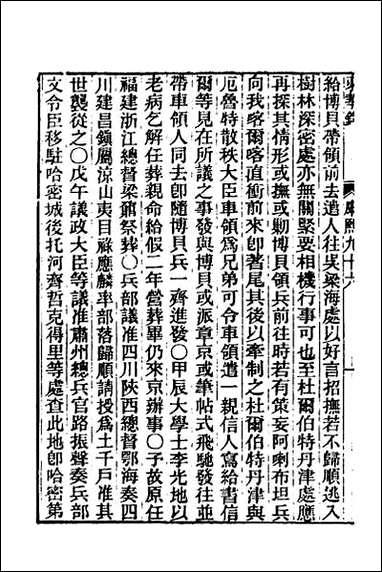 東華錄 康熙九十六
給博貝帶領前去遣人往吳梁海處以好言招撫若不歸順逃入
樹林深密處亦無關緊要相機行事可也至杜爾伯特丹津處應
再探其情形或撫或勦博貝領兵前往時若有策妄阿喇布坦兵
向我喀爾喀直衝前來卽著尾其後以牽制之杜爾伯特丹津與
厄魯特散秩大臣車領爲兄弟可令車領遣一親信人寫給書信
爾等見在所議之事發與博貝或派章京或筆帖式飛馳發往並
帶車領人同去卽隨博貝兵一齊進發〇甲辰大學士李光地以
老病乞解任葬親命給假二年營葬畢仍來京辦事〇予故原任
福建浙江總督梁鼐祭葬〇兵部議准四川陝西總督鄂海奏四
川建昌鎭屬涼山夷目祿應麟率部落歸順請授爲土千戶准其
世襲從之〇戊午議政大臣等議准肅州總兵官路振聲奏兵部
文令臣移駐哈密城後托河齊哲克得里等處查此地卽哈密第